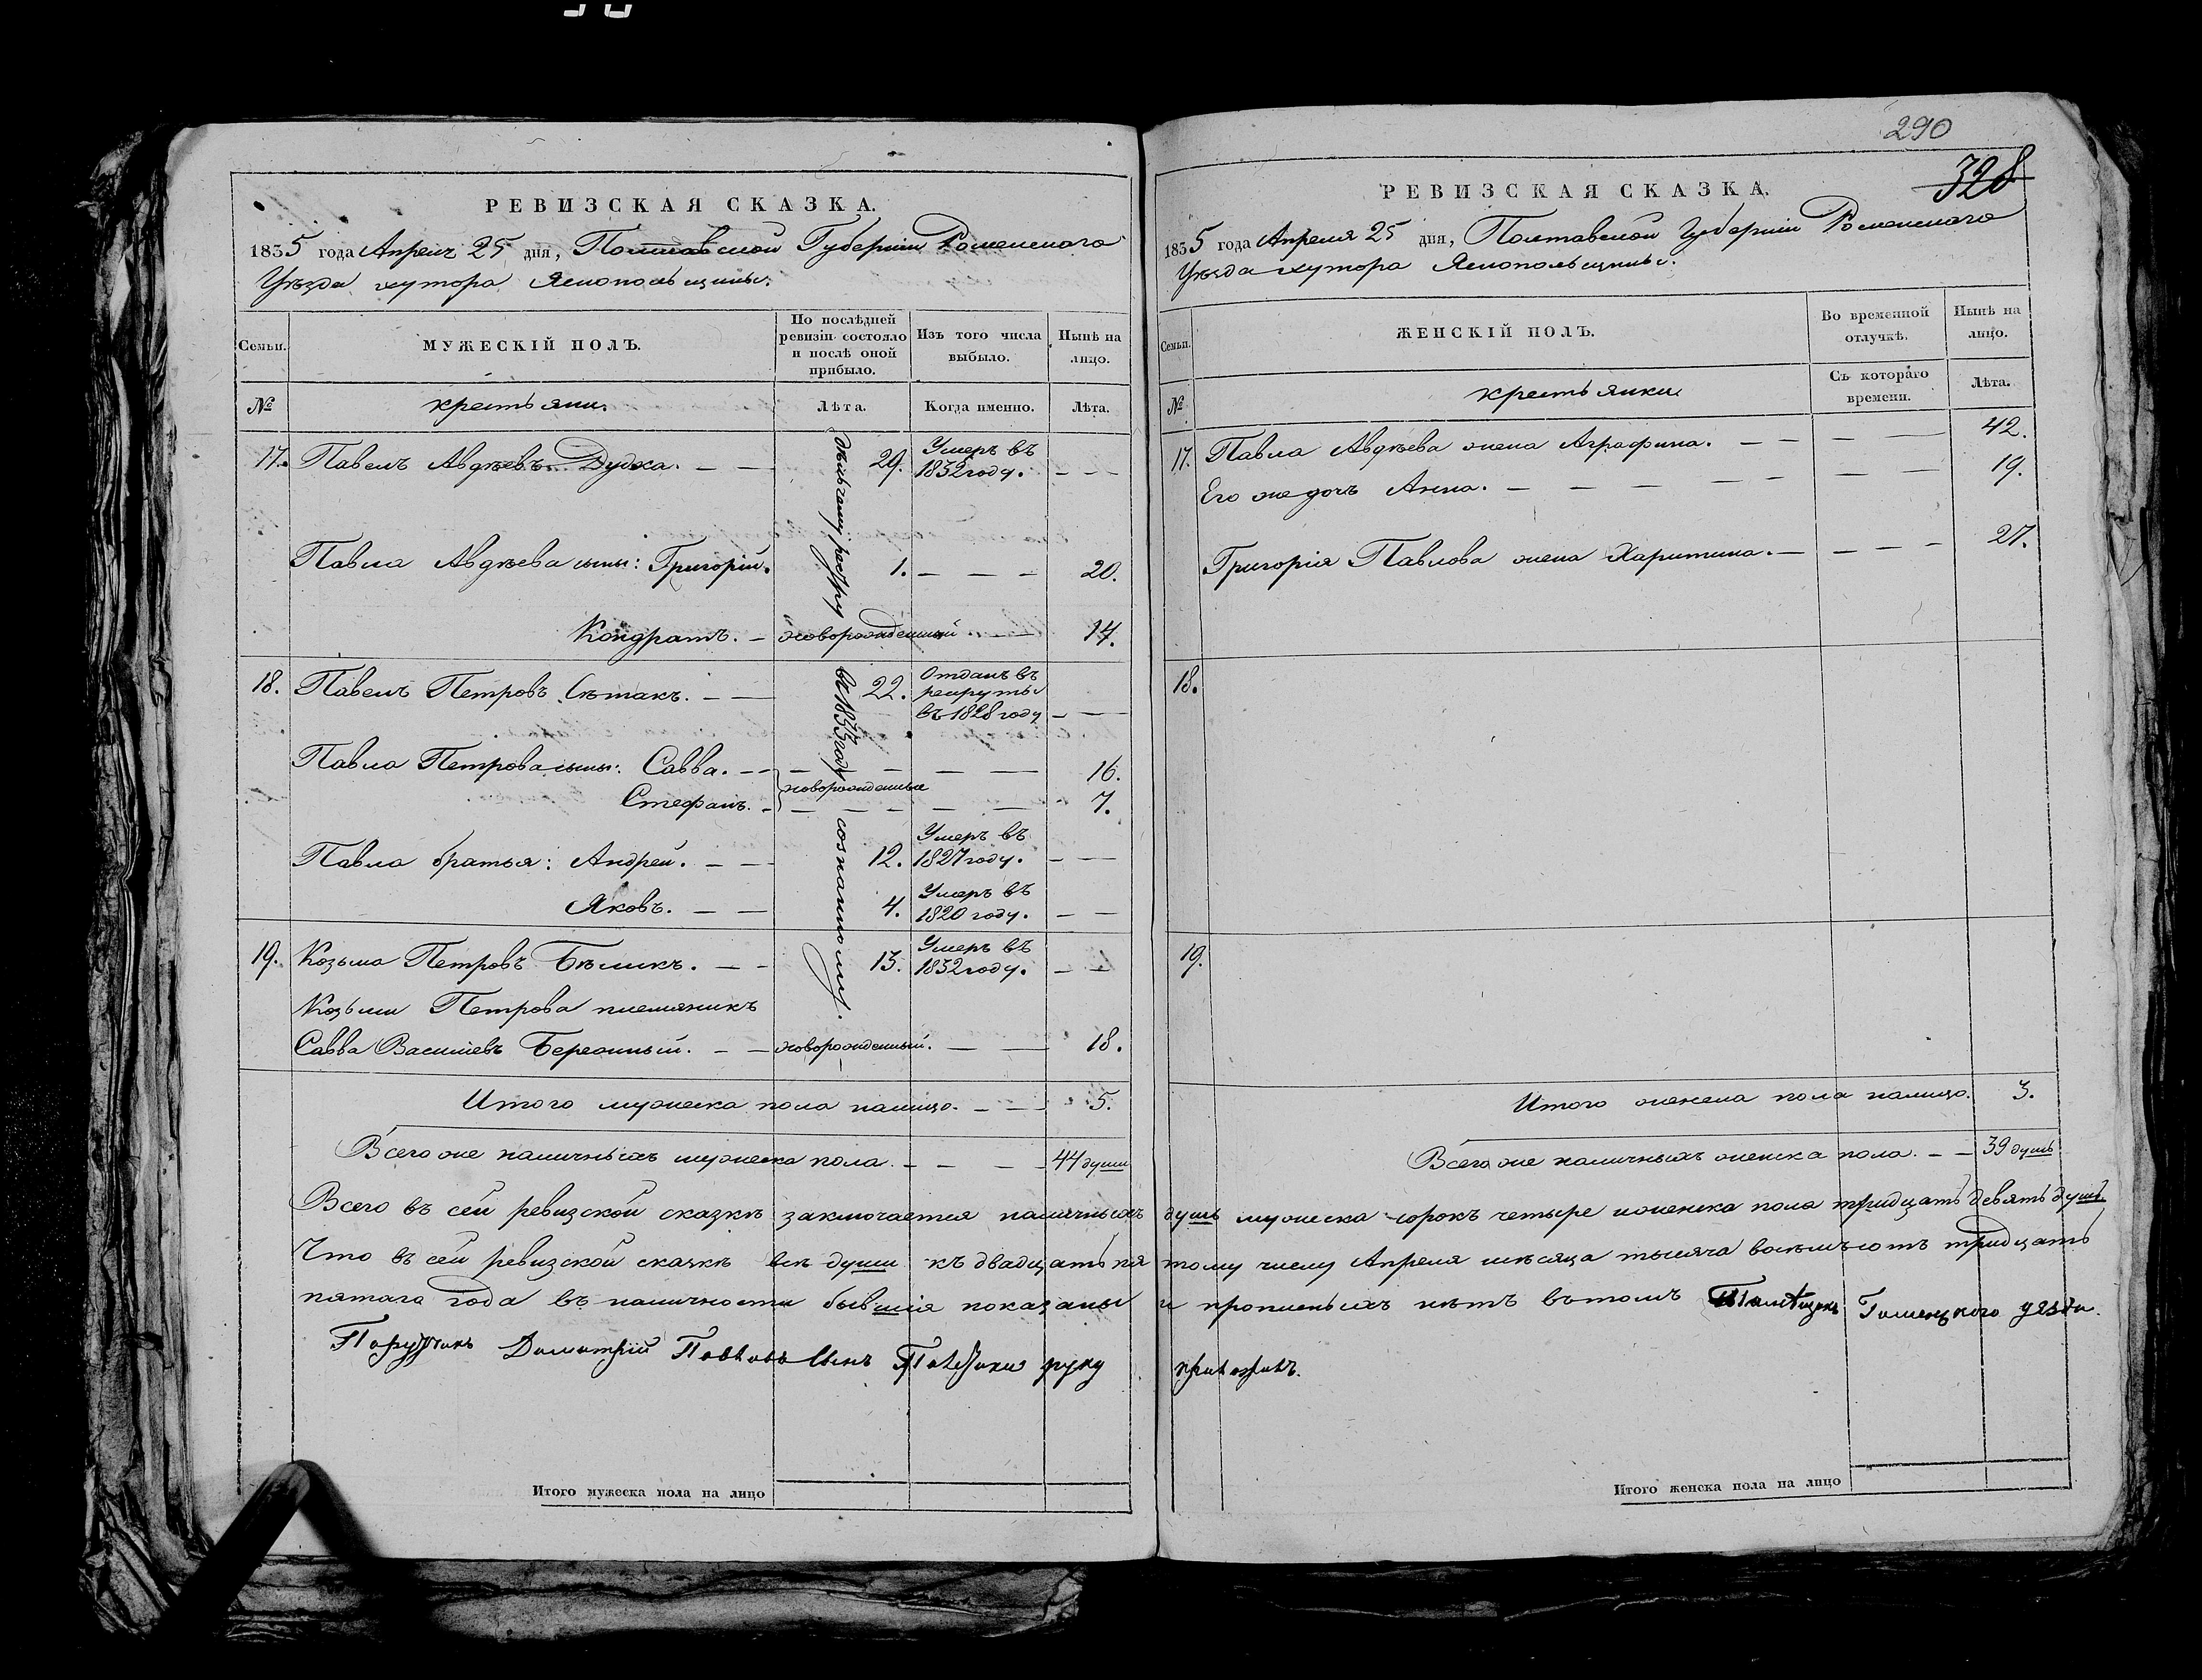 РЕВИЗСКАЯ СКАЗКА.
1835 года Апреля 25 дня, Полтавской Губерніи Роменскаго
Уѣзда хутора Яснопольщины.
Семьи.
МУЖЕСКІЙ ПОЛЪ.
По послѣдней ревизіи состояло и послѣ оной прибыло.
Изъ того числа выбыло.
Нынѣ на лицо.
№
крестьяни.
Лѣта.
Когда именно.
Лѣта.
17. Павелъ Авдѣевъ Дудка. 29. Умеръ въ 1832 году.
Павла Авдѣева сыны: Григорій. 1. 20.
Кондратъ. новорожденный 14.
18. Павелъ Петровъ 22. Отданъ въ рекруты въ 1828 году
Павла Петрова сыны: Савва. 16.
новорожденные
Стефанъ. 7.
Павла братья: Андрей. 12. Умеръ въ 1827 году.
Яковъ. 4. Умеръ въ 1820 году.
19. Козьма Петровъ Бѣликъ. 13. Умеръ въ 1832 году.
Козьми Петрова племяникъ
Савва Василіевъ Бережный. новорожденный. 18.
раздѣлу въ 1833 году
Итого мужеска пола налицо. 5.
Всего же наличныхъ мужеска пола. 44 души
290
328
РЕВИЗСКАЯ СКАЗКА.
1835 года Апреля 25 дня, Полтавской Губерніи Роменскаго
Уѣзда хутора Яснопольщины.
Семьи.
ЖЕНСКІЙ ПОЛЪ.
Во временной отлучкѣ.
Нынѣ на лицо.
№
крестьянки
Съ котораго времени.
Лѣта.
17. Павла Авдѣева жена Аграфина. 42.
Его же дочь Анна. 19.
Григорія Павлова жена Харитина. 27.
18.
19.
Итого женска пола налицо. 3.
Всего же наличныхъ женска пола. 39 душъ
Всего въ сей ревизской сказкѣ заключается наличныхъ душъ мужеска сорокъ четыре и женска пола тридцать девять душъ.
Что въ сей ревизской сказкѣ всѣ души къ двадцать пятому числу Апреля мѣсяца тысяча восемьсотъ тридцать
пятаго года въ наличности бывшія показаны и прописныхъ нѣтъ въ томъ уезда.
Порутчикъ Димитрій Павловъ Сынъ руку приложилъ.
Итого мужеска пола на лицо
Итого женска пола на лицо